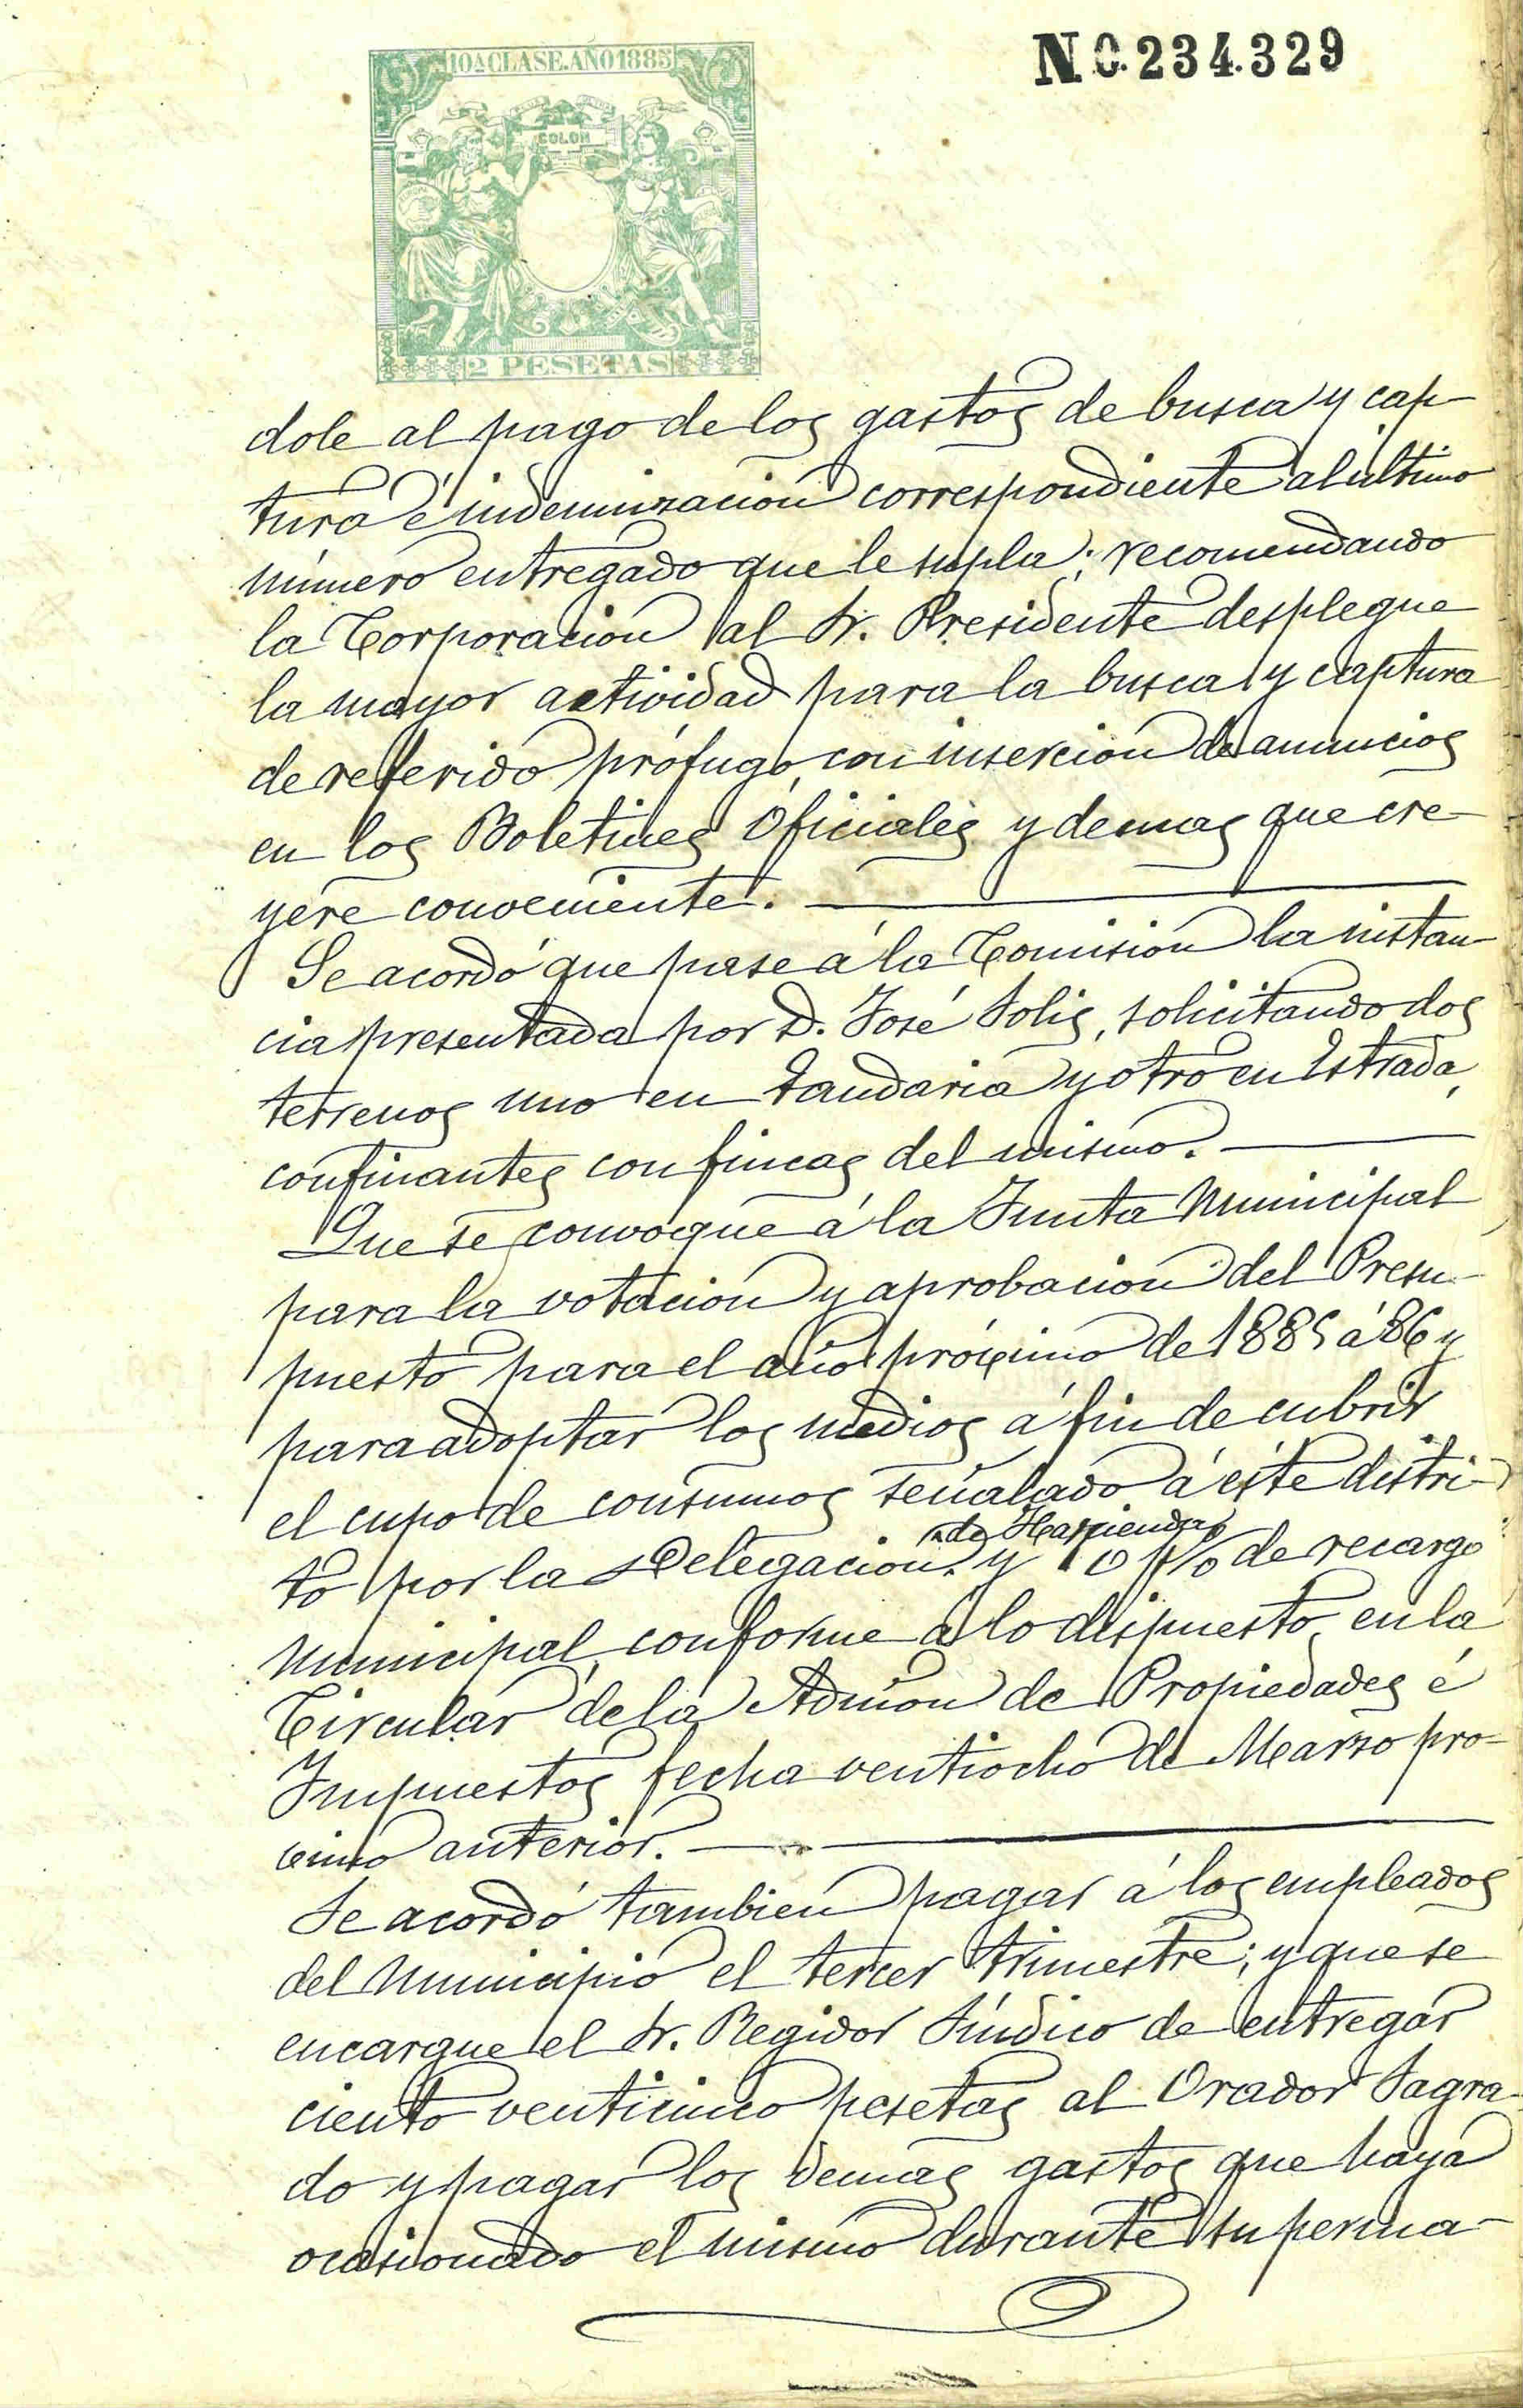 10ª CLASE. AÑO 1885
N 0.234.329
COLON
2 PESETAS
dole al pago de los gastos de busca y cap-
tura é indemnizacion correspondiente al ultimo
número entregado que le supla; recomendando
la Corporacion al Sr. Presidente despliegue
la mayor actividad para la busca y captura
de referido prófugo, con insercion de anuncios
en los Boletines Oficiales y demas que cre-
yere conveniente.
Se acordó que pase á la Comision la instan-
cia presentada por D. José Solis, solicitando dos
terrenos uno en Tandaria y otro en Estrada,
confinantes con fincas del mismo.
Que se convoque á la Junta Municipal
para la votacion y aprobacion del Presu-
puesto para el año próximo de 1885 á 86 y
para adoptar los medios á fin de cubrir
el cupo de consumos señalado á éste distri-
de Hacienda
to por la Delegacion y 10 p% de recargo
Municipal, conforme á lo dispuesto en la
Circular de la Admon de Propiedades é
Impuestos fecha ventiocho de Marzo pro-
ximo anterior.
Se acordó tambien pagar á los empleados
del Municipio el tercer trimestre; y que se
encargue el Sr. Regidor Síndico de entregar
ciento venticinco pesetas al Orador Sagra-
do y pagar los demas gastos que haya
ocasionado el mismo durante su perma-